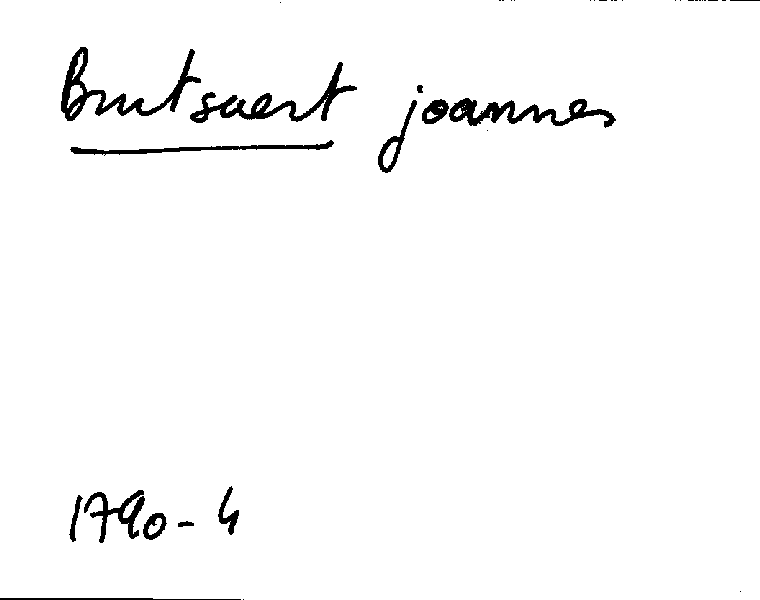 Brutsaert joannes
1790-4